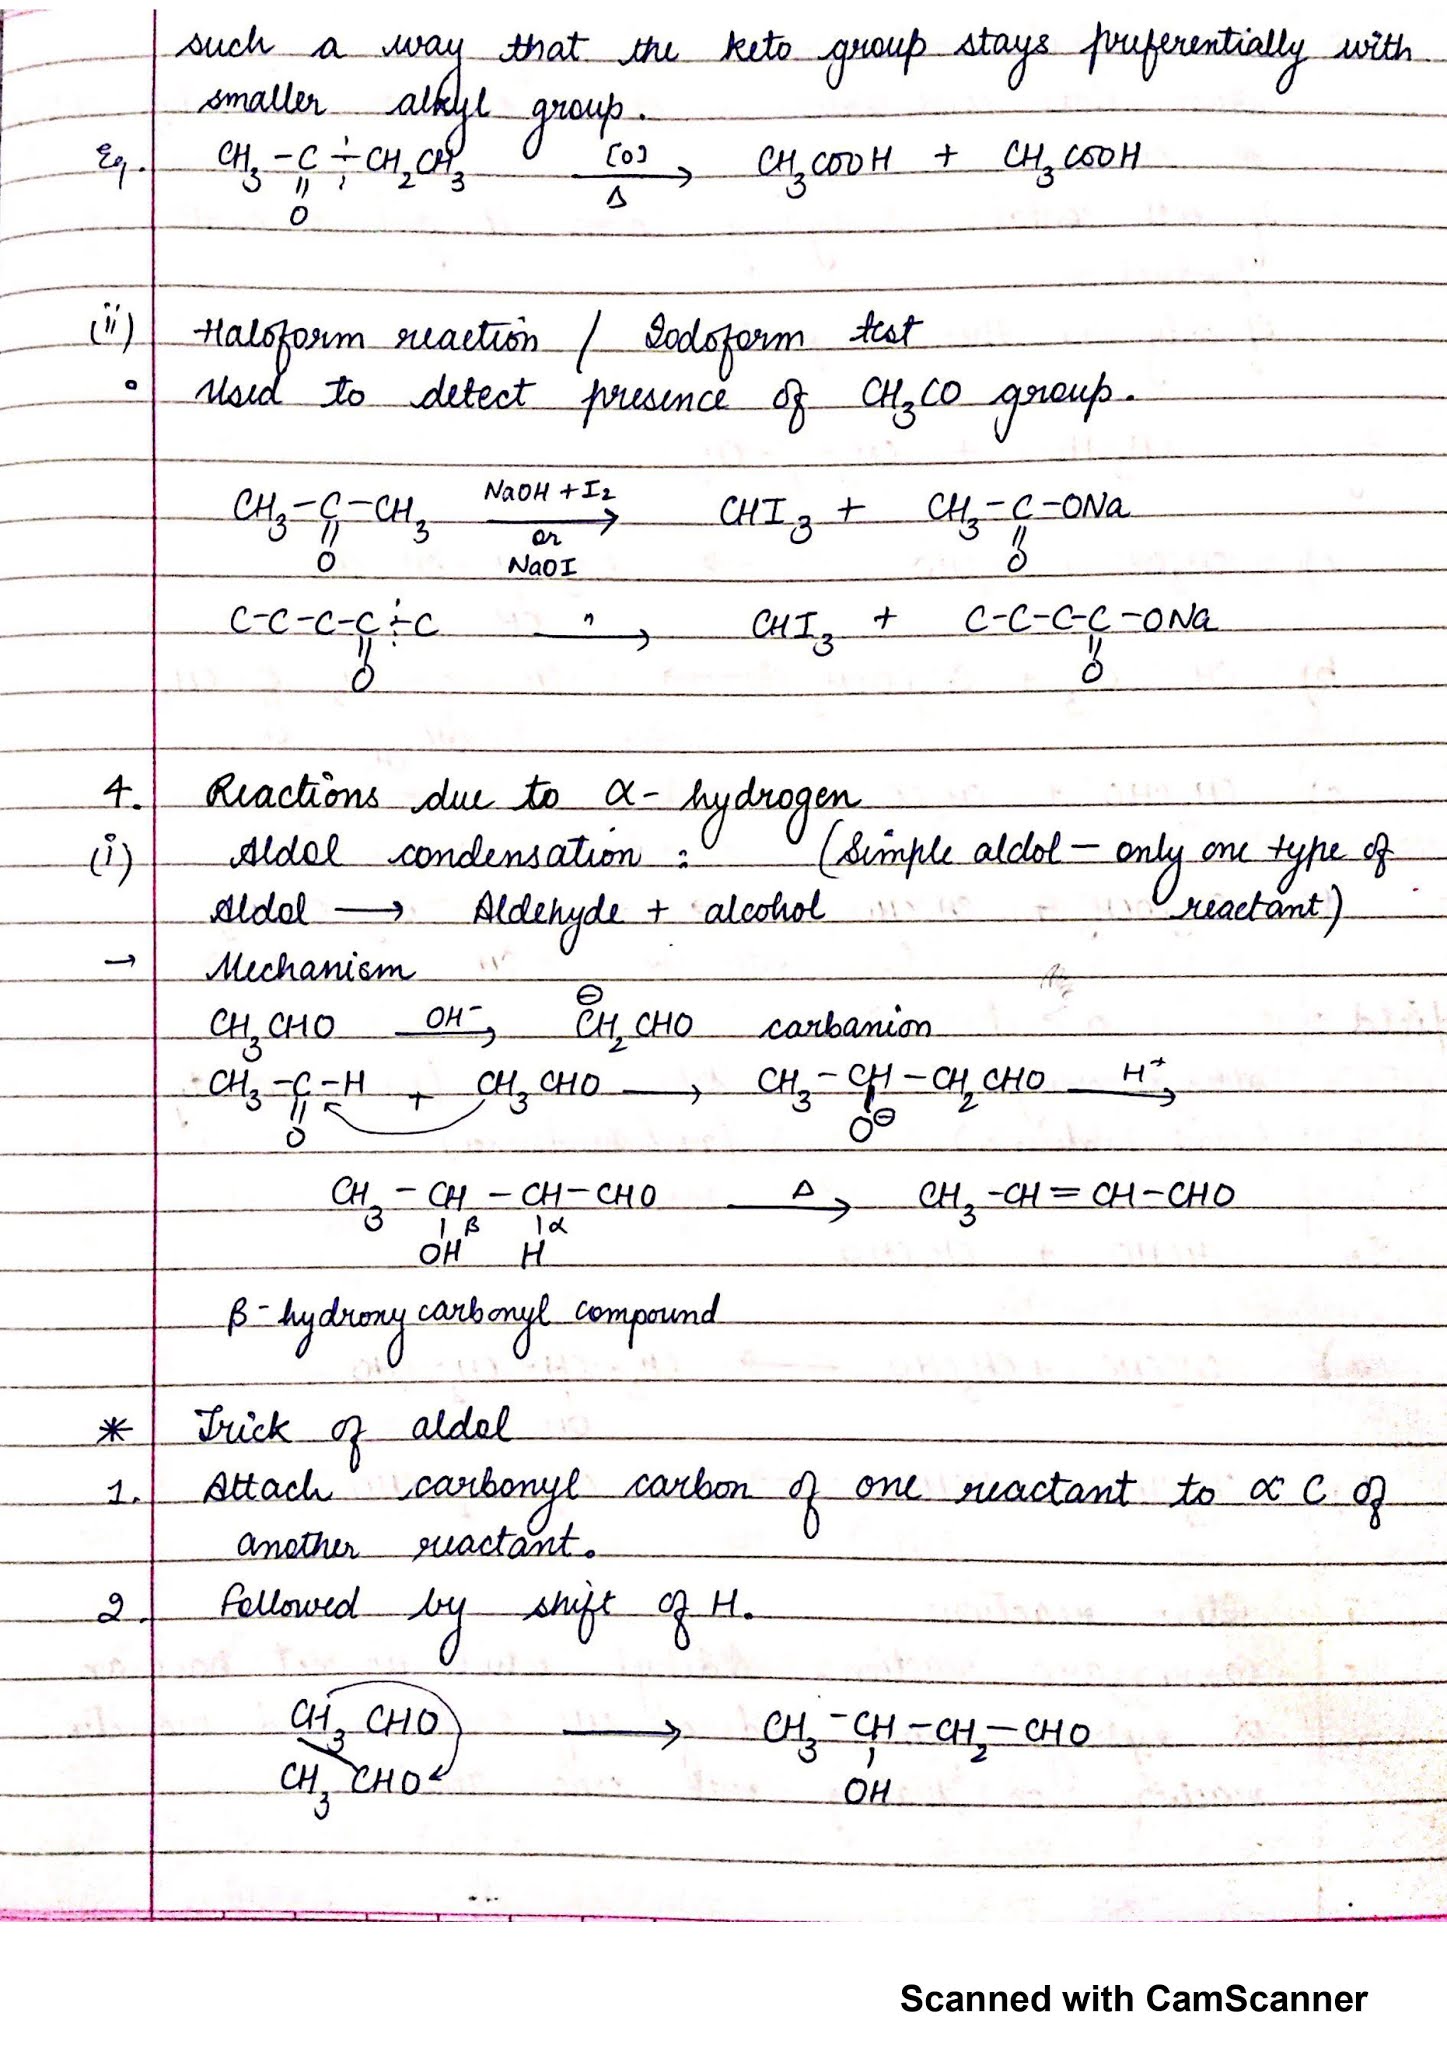 such a way that the keto group stays preferentially with
smaller alkyl group.
Eg. CH3-C-CH2CH3 [O] Δ → CH3COOH + CH3COOH
O
(ii) Haloform reaction / Iodoform test
° Used to detect presence of CH3CO group.
CH3-C-CH3 NaOH + I2 → CHI3 + CH3-C-ONa
O or O
NaOI
C-C-C-C-C " → CHI3 + C-C-C-C-ONa
O O
4. Reactions due to α-hydrogen
(i) Aldol condensation : (Simple aldol - only one type of
Aldol → Aldehyde + alcohol reactant)
→ Mechanism
CH3CHO OH⁻ → ⊖CH2CHO carbanion
CH3-C-H + CH3CHO → CH3-CH-CH2CHO H⁺ →
O O⊖
CH3-CH-CH-CHO Δ → CH3-CH=CH-CHO
β α
OH H
β-hydroxy carbonyl compound
* Trick of aldol
1. Attach carbonyl carbon of one reactant to α C of
another reactant.
2. Followed by shift of H.
CH3 CHO → CH3-CH-CH2-CHO
CH3 CHO OH
Scanned with CamScanner